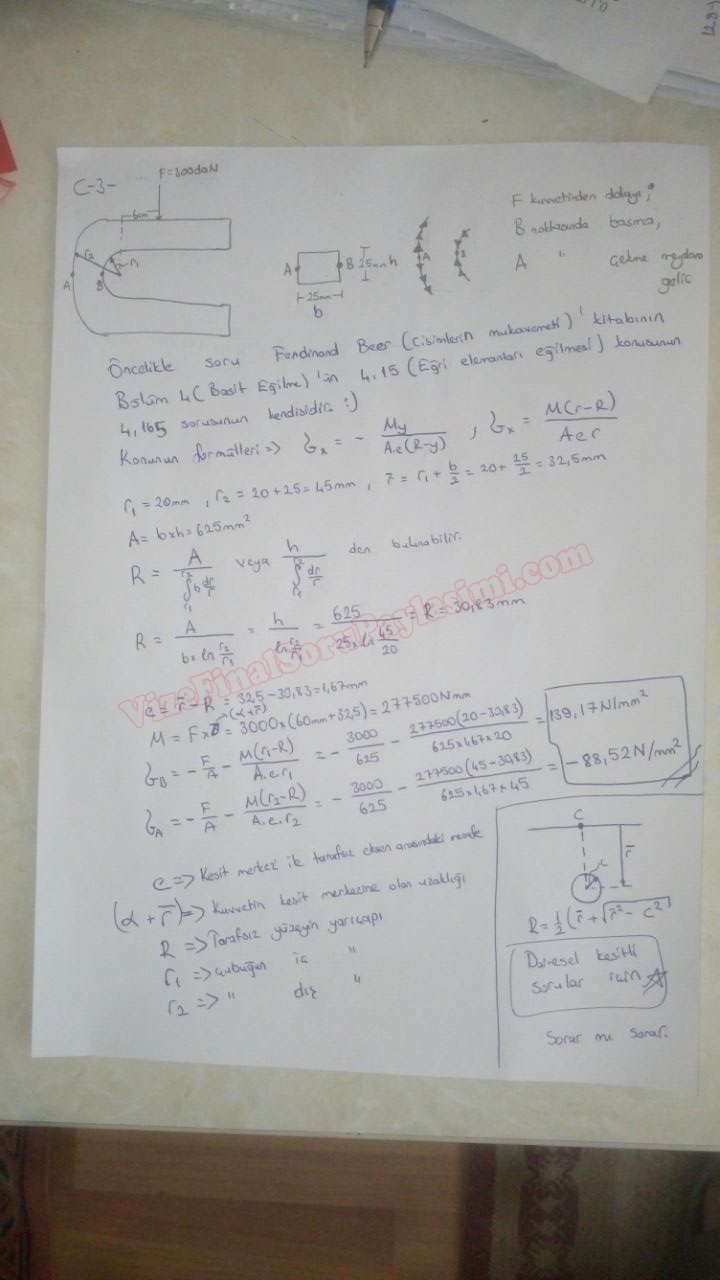 C-3-
F=300daN
6cm
r2
r1
A
B
A
B 25mm h
25mm
b
A
B
F kuvvetinden dolayı;
B noktasında basma,
A " Çekme meydana
gelir
Öncelikle soru Ferdinand Beer (Cisimlerin mukavemeti)' kitabının
Bölüm 4 (Basit Eğilme)'in 4.15 (Eğri elemanları eğilmesi) konusunun
4,165 sorusunun kendisidir :)
Konunun formülleri => σx = - My / A.e(R-y) , σx = M(r-R) / Aer
r1 = 20mm , r2 = 20+25 = 45mm , r̄ = r1 + b/2 = 20 + 25/2 = 32,5mm
A = b×h = 625mm²
R = A / ∫r1r2 b dr/r veya h / ∫r1r2 dr/r den bulunabilir.
R = A / b×ln r2/r1 = h / ln r2/r1 = 625 / 25×ln 45/20 = R = 30,83mm
VizeFinalSoruPaylasimi.com
e = r̄ - R = 32,5 - 30,83 = 1,67mm
(α+r̄)
M = F× = 3000×(60mm+32,5) = 277500Nmm
σB = - F/A - M(r1-R) / A.e.r1 = - 3000/625 - 277500(20-30,83) / 625×1,67×20 = 139,17N/mm²
σA = - F/A - M(r2-R) / A.e.r2 = - 3000/625 - 277500(45-30,83) / 625×1,67×45 = -88,52N/mm²
e => Kesit merkezi ile tarafsız eksen arasındaki mesafe
(α + r̄) => Kuvvetin kesit merkezine olan uzaklığı
R => Tarafsız yüzeyin yarıçapı
r1 => çubuğun iç "
r2 => " dış "
C
r̄
c
R = 1/2 (r̄ + √r̄² - c²)
Dairesel kesitli
sorular için
Sorar mı sorar.